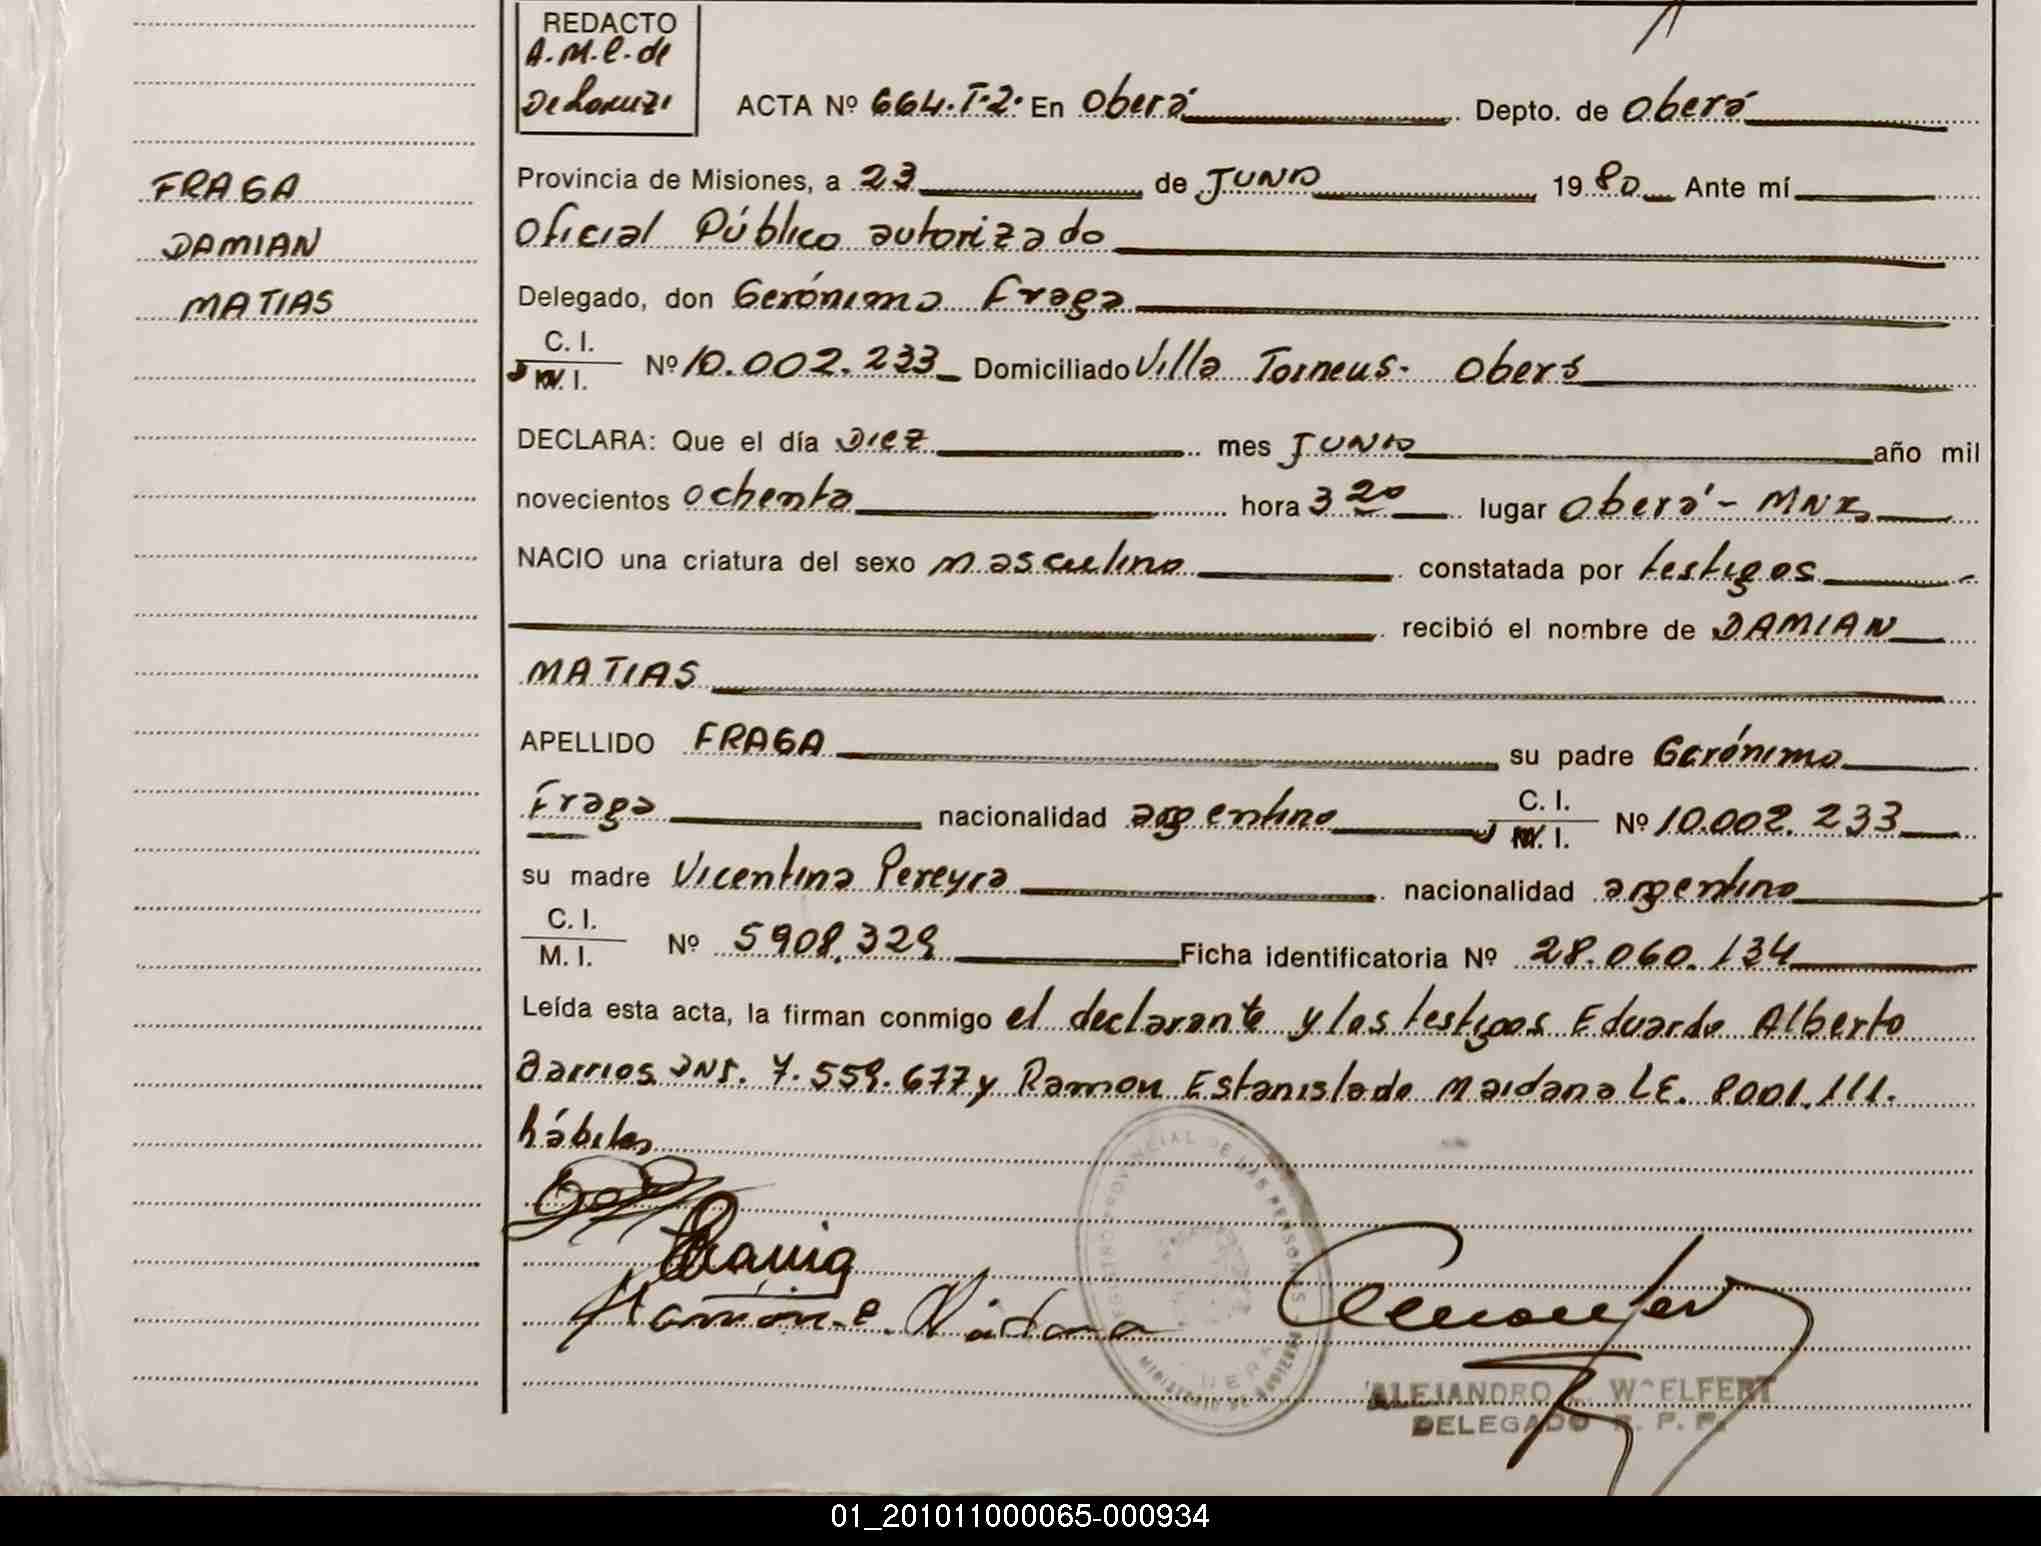 REDACTO
A.M.C. de
De Lorenzi
ACTA Nº 664.T.2. En Oberá Depto. de Oberá
FRAGA
DAMIAN
MATIAS
Provincia de Misiones, a 23 de JUNIO 1980 Ante mí
Oficial Público autorizado
Delegado, don Gerónimo Fraga
C. I.
M. I. Nº 10.002.233 Domiciliado Villa Torneus. Oberá
DECLARA: Que el día DIEZ mes JUNIO año mil
novecientos ochenta hora 3 20 lugar Oberá - MNES
NACIO una criatura del sexo masculino constatada por testigos
recibió el nombre de DAMIAN
MATIAS
APELLIDO FRAGA su padre Gerónimo
Fraga nacionalidad argentino C. I.
M. I. Nº 10.002.233
su madre Vicentina Pereyra nacionalidad argentina
C. I.
M. I. Nº 5908.329 Ficha identificatoria Nº 28.060.134
Leída esta acta, la firman conmigo el declarante y los testigos Eduardo Alberto
Barrios DNI. 7.559.677 y Ramon Estanislado Maidana LE. 8001.111.
hábiles
REGISTRO PROVINCIAL DE LAS PERSONAS
Ramón E. Maidana
ALEJANDRO WOELFERT
DELEGADO R. P. P.
01_201011000065-000934